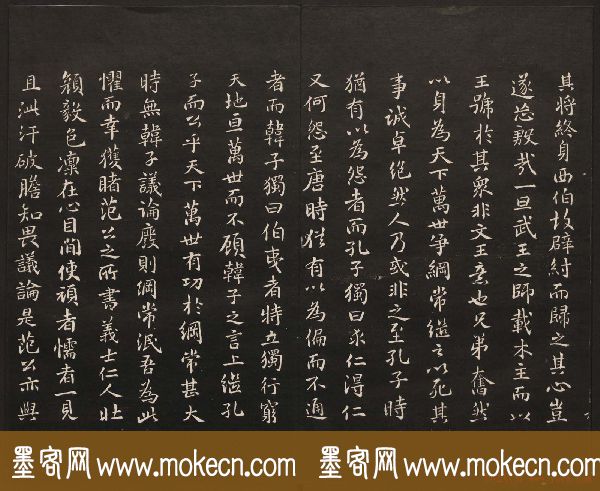 其將終身西伯故辟紂而歸之其心豈
遂忘殷哉一旦武王之師載木主而以
王號於其眾非文王意也兄弟奮然
以身為天下萬世爭綱常繼之以死其
事誠卓絕然人乃或非之至孔子時
猶有以為怨者而孔子獨曰求仁得仁
又何怨至唐時猶有以為偏而不通
者而韓子獨曰伯夷者特立獨行窮
天地亘萬世而不顧韓子之言上繼孔
子而公乎天下萬世有功於綱常甚大
時無韓子議論廢則綱常泯吾為此
懼而幸獲睹范公之所書義士仁人壯
顏毅色凜在心目間使頑者懦者一見
且洪汗破膽知畏議論是范公亦與
墨客网 www.mokecn.com
墨客网 www.mokecn.com